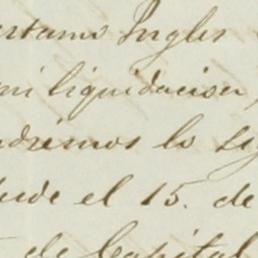 estamo Ingles
mi liquidacion,
dremos lo sig
desde el 15. de
de Capital